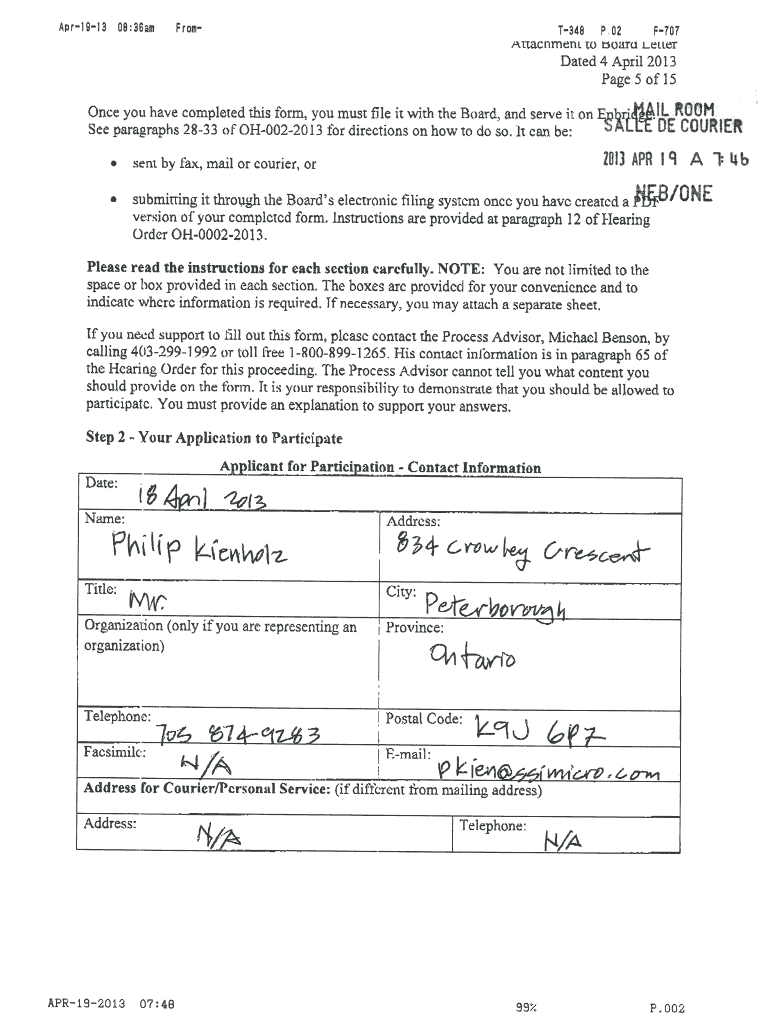 Apr-19-13 08:36am From- T-348 P.02 F-707
Attachment to Board Letter
Dated 4 April 2013
Page 5 of 15
Once you have completed this form, you must file it with the Board, and serve it on Enbridge.
MAIL ROOM
See paragraphs 28-33 of OH-002-2013 for directions on how to do so. It can be:
SALLE DE COURIER
• sent by fax, mail or courier, or
2013 APR 19 A 7:46
• submitting it through the Board's electronic filing system once you have created a PDF
NEB/ONE
version of your completed form. Instructions are provided at paragraph 12 of Hearing
Order OH-0002-2013.
Please read the instructions for each section carefully. NOTE: You are not limited to the
space or box provided in each section. The boxes are provided for your convenience and to
indicate where information is required. If necessary, you may attach a separate sheet.
If you need support to fill out this form, please contact the Process Advisor, Michael Benson, by
calling 403-299-1992 or toll free 1-800-899-1265. His contact information is in paragraph 65 of
the Hearing Order for this proceeding. The Process Advisor cannot tell you what content you
should provide on the form. It is your responsibility to demonstrate that you should be allowed to
participate. You must provide an explanation to support your answers.
Step 2 - Your Application to Participate
Applicant for Participation - Contact Information
Date: 18 April 2013
Name: Philip Kienholz
Address: 834 Crowley Crescent
Title: Mr.
City: Peterborough
Organization (only if you are representing an
organization)
Province: Ontario
Telephone: 705 874-9283
Postal Code: K9J 6P7
Facsimile: N/A
E-mail: pkien@ssimicro.com
Address for Courier/Personal Service: (if different from mailing address)
Address: N/A
Telephone: N/A
APR-19-2013 07:48 99% P.002